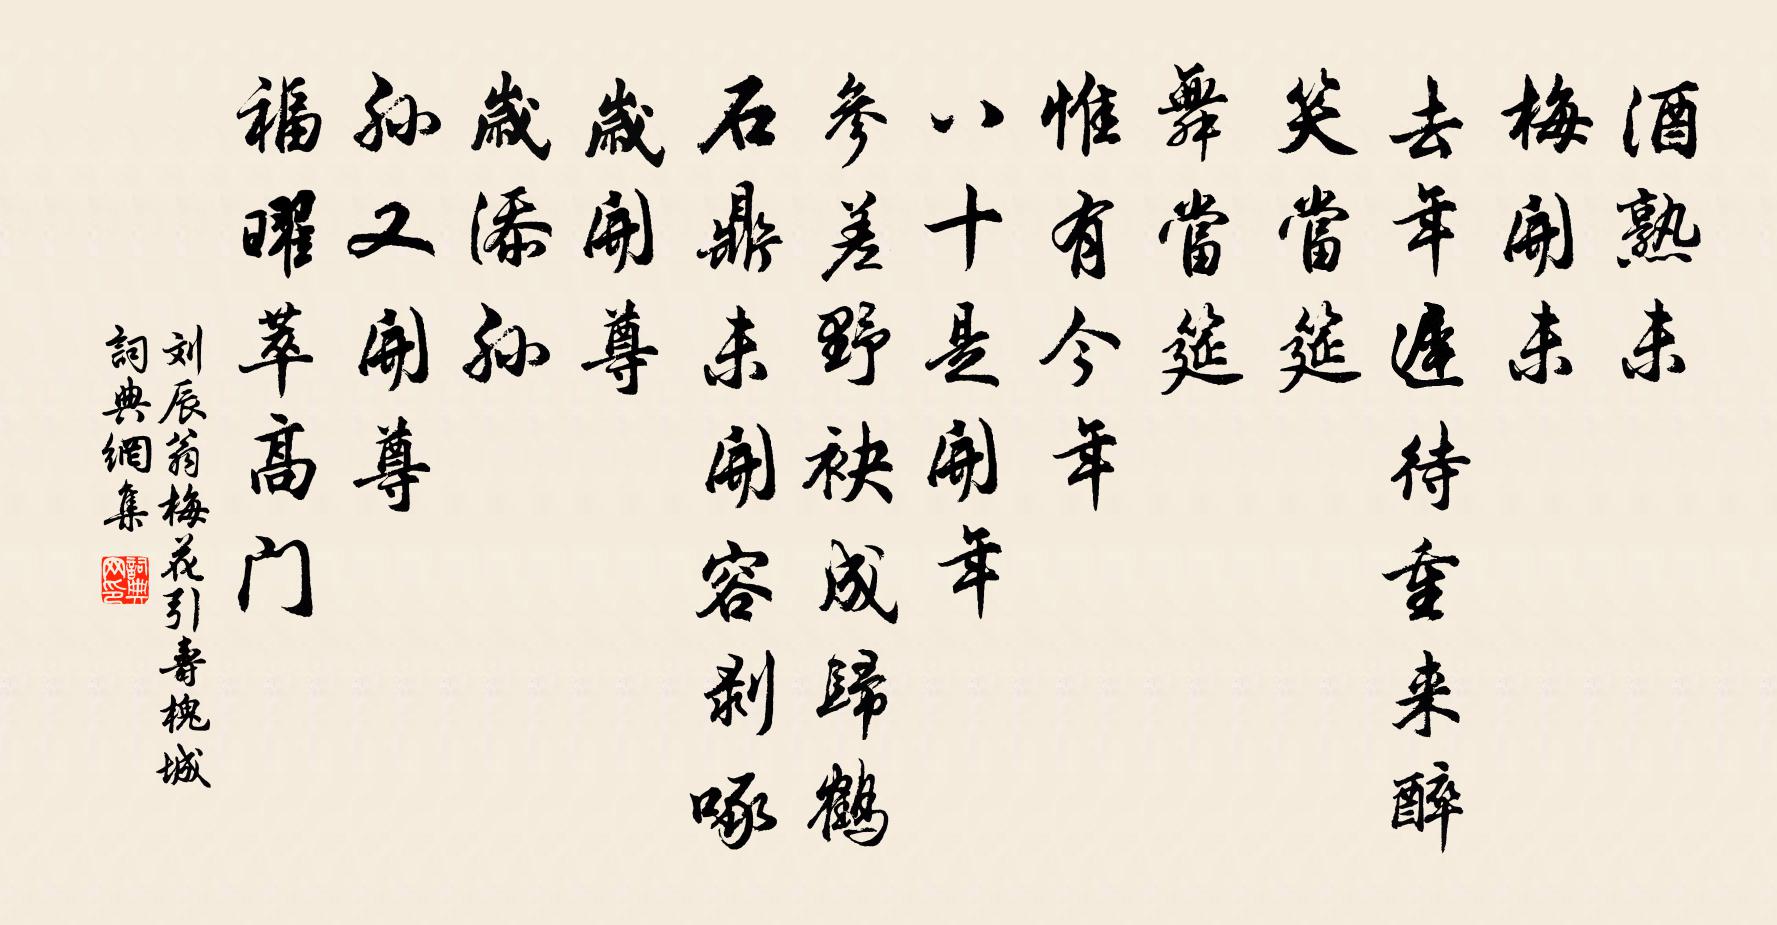 酒熟未
梅開未
去年遲待重来醉
笑當筵
舞當筵
惟有今年
八十是開年
參差野袂成歸鶴
石鼎未開容剥啄
歲開尊
歲添孙
孙又開尊
福曜萃高门
刘辰翁梅花引壽槐城
詞典網集
詞典网印